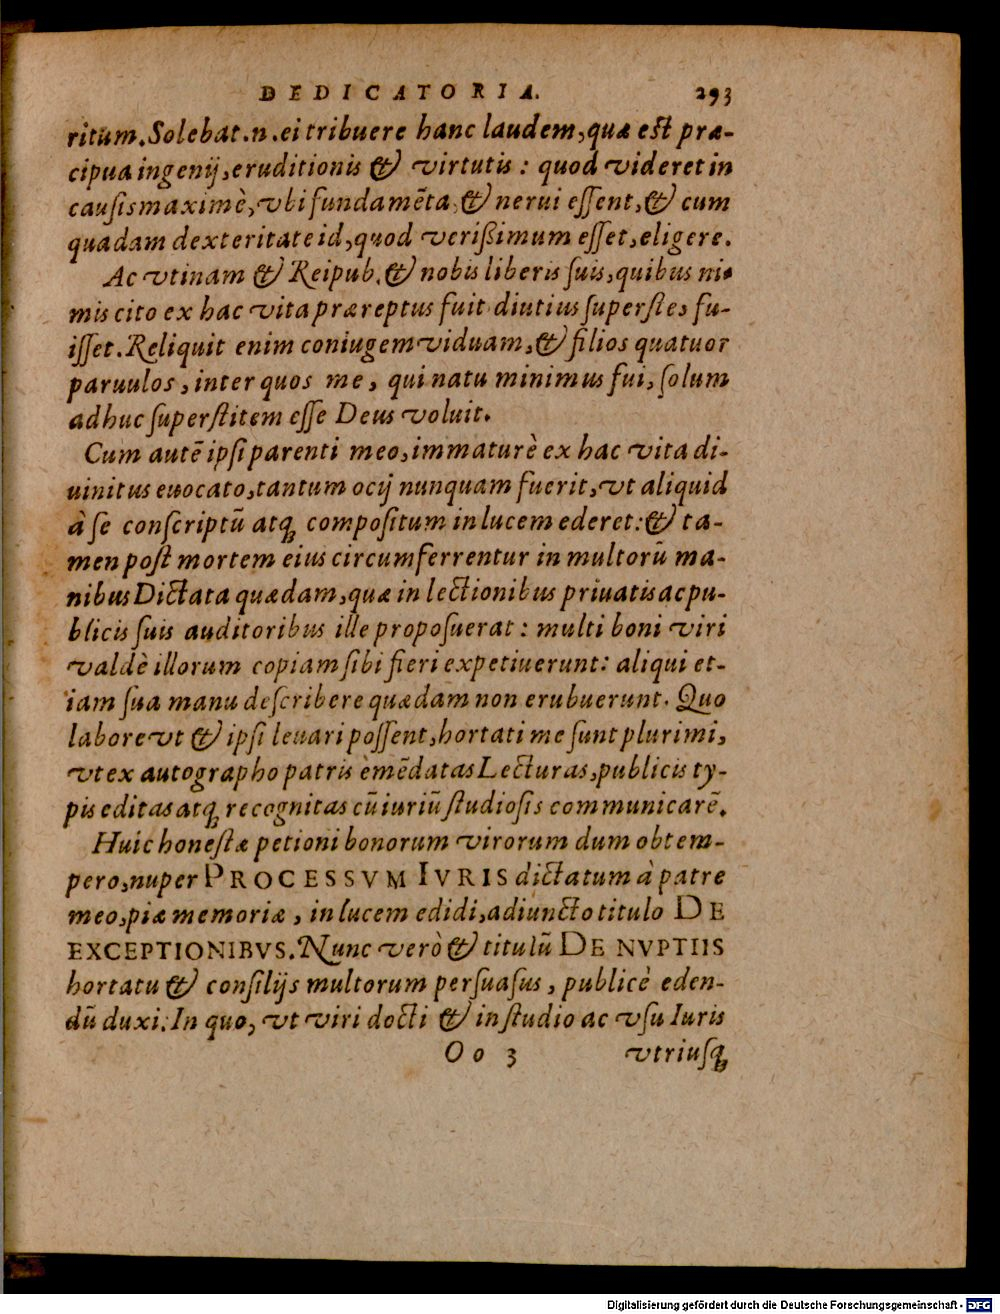 DEDICATORIA. 293
ritum. Solebat .n. ei tribuere hanc laudem, quæ est præ-
cipua ingenij, eruditionis & virtutis: quod videret in
causis maximè, vbi fundamēta, & nerui essent, & cum
quadam dexteritate id, quod verißimum esset, eligere.
Ac vtinam & Reipub. & nobis liberis suis, quibus ni-
mis cito ex hac vita præreptus fuit diutius superstes fu-
isset. Reliquit enim coniugem viduam, & filios quatuor
paruulos, inter quos me, qui natu minimus fui, solum
adhuc superstitem esse Deus voluit.
Cum autē ipsi parenti meo, immaturè ex hac vita di-
uinitus euocato, tantum ocij nunquam fuerit, vt aliquid
à se conscriptū atq; compositum in lucem ederet: & ta-
men post mortem eius circumferrentur in multorū ma-
nibus Dictata quædam, quæ in lectionibus priuatis ac pu-
blicis suis auditoribus ille proposuerat: multi boni viri
valdè illorum copiam sibi fieri expetiuerunt: aliqui et-
iam sua manu describere quædam non erubuerunt. Quo
labore vt & ipsi leuari possent, hortati me sunt plurimi,
vt ex autographo patris èmēdatas Lecturas, publicis ty-
pis editas atq; recognitas cū iuriū studiosis communicarē.
Huic honestæ petioni bonorum virorum dum obtem-
pero, nuper PROCESSVM IVRIS dictatum à patre
meo, piæ memoriæ, in lucem edidi, adiuncto titulo DE
EXCEPTIONIBVS. Nunc verò & titulū DE NVPTIIS
hortatu & consilijs multorum persuasus, publicè eden-
dū duxi. In quo, vt viri docti & in studio ac vsu Iuris
Oo 3 vtriusq;
Digitalisierung gefördert durch die Deutsche Forschungsgemeinschaft - DFG